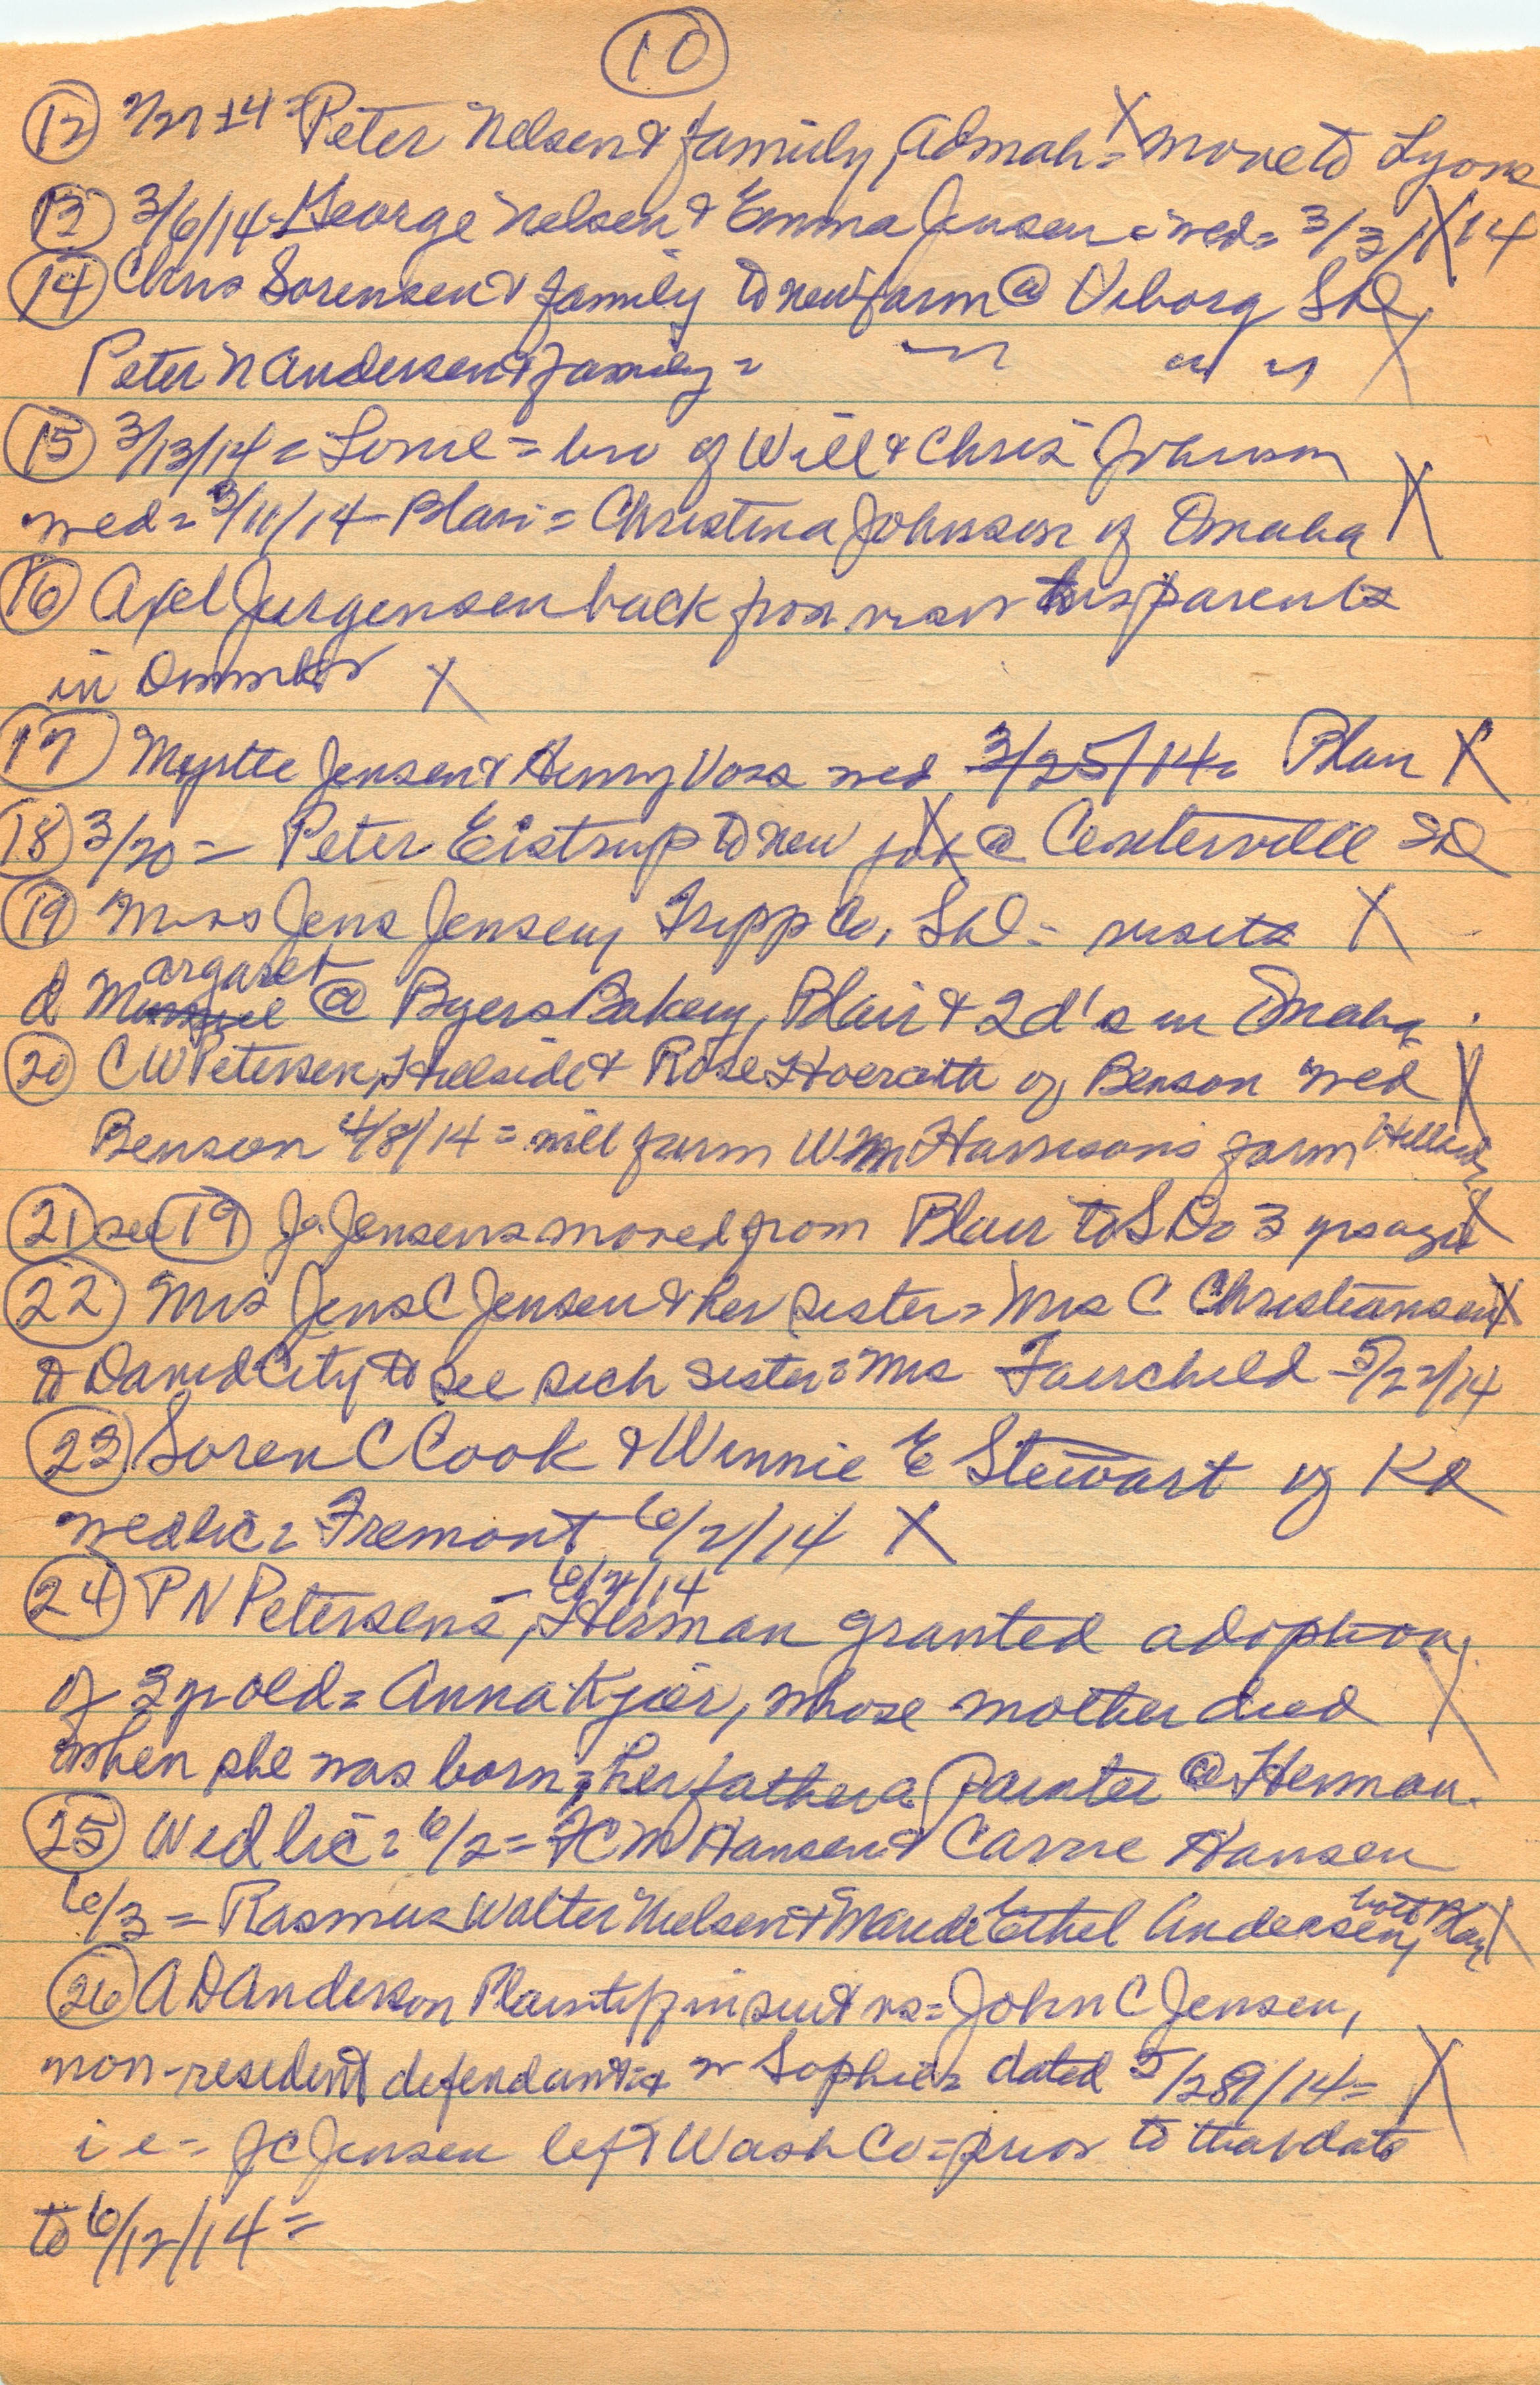 10
12 2/27 14 = Peter Nelsen & family, Admah = X move to Lyons
13 3/6/14 - George Nelsen & Emma Jensen = wed = 3/3/14 X
14 Chris Sorensen & family to new farm @ Viborg SD X
Peter N Andersen & family = " " "
15 3/13/14 = Louie = bro of Will & Chris Johnson
wed = 3/11/14 - Blair = Christina Johnson of Omaha X
16 Axel Jurgensen back from visit to his parents
in Denmark X
17 Myrtle Jensen & Henry Voss wed 3/25/14 = Blair X
18 3/20 = Peter Eistrup to new job @ Centerville SD X
19 Mrs Jens Jensen, Tripp Co, SD = visits X
argaret
d M @ Byers Bakery, Blair & 2 d's in Omaha.
20 C W Petersen, Hillside & Rose of Benson wed X
Benson 4/8/14 = will farm Wm Harrison's farm Hillside
21 see 19 J. Jensens moved from Blair to SD 3 yrs ago X
22 Mrs Jens C Jensen & her sister = Mrs C Christiansen X
to David City to see sick sister = Mrs Fairchild 5/22/14
23 Soren C Cook & Winnie E Stewart of Kd
wed lic = Fremont 6/2/14 X
6/2/14
24 P N Petersens, Herman granted adoption
of 3 yr old = Anna Kjer, whose mother died X
when she was born; her father a painter @ Herman.
25 Wed lic = 6/2 = H C M Hansen & Carrie Hansen
6/3 = Rasmus Walter Nielsen & Maude Ethel Andersen, both Blair X
26 A D Anderson Plaintiff in suit vs = John C Jensen,
non-resident defendant & w Sophie = dated 5/28/14 = X
i e = J C Jensen left Wash Co = prior to that date
to 6/12/14 =